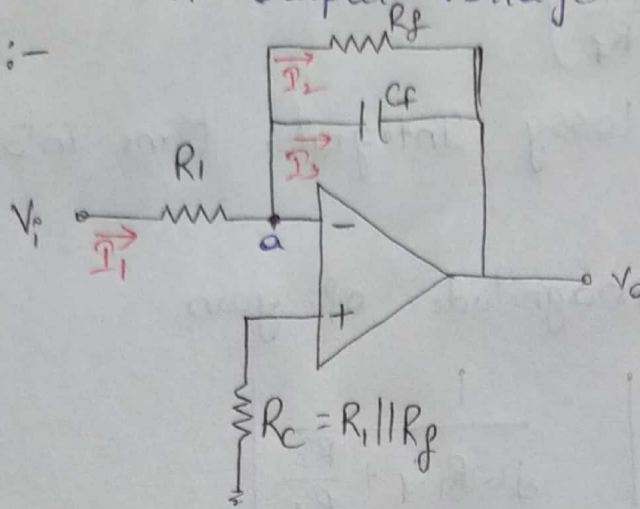 :-
Rf
I₂
Cf
I₃
R₁
Vi
a
I₁
-
+
Vo
Rc = R₁||Rf